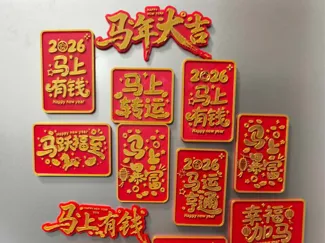 马年大吉
Happy new year
2026
马上
有钱
Happy new year
马上
转运
Happy new year
2026
马上
有钱
Happy new year
Happy new year
马跃福至
马上
暴富
2026
马运
亨通
Happy new year
马上
暴富
马上有钱
幸福
加马